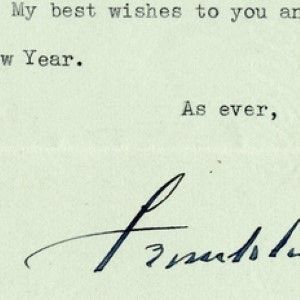 My best wishes to you an
w Year.
As ever,